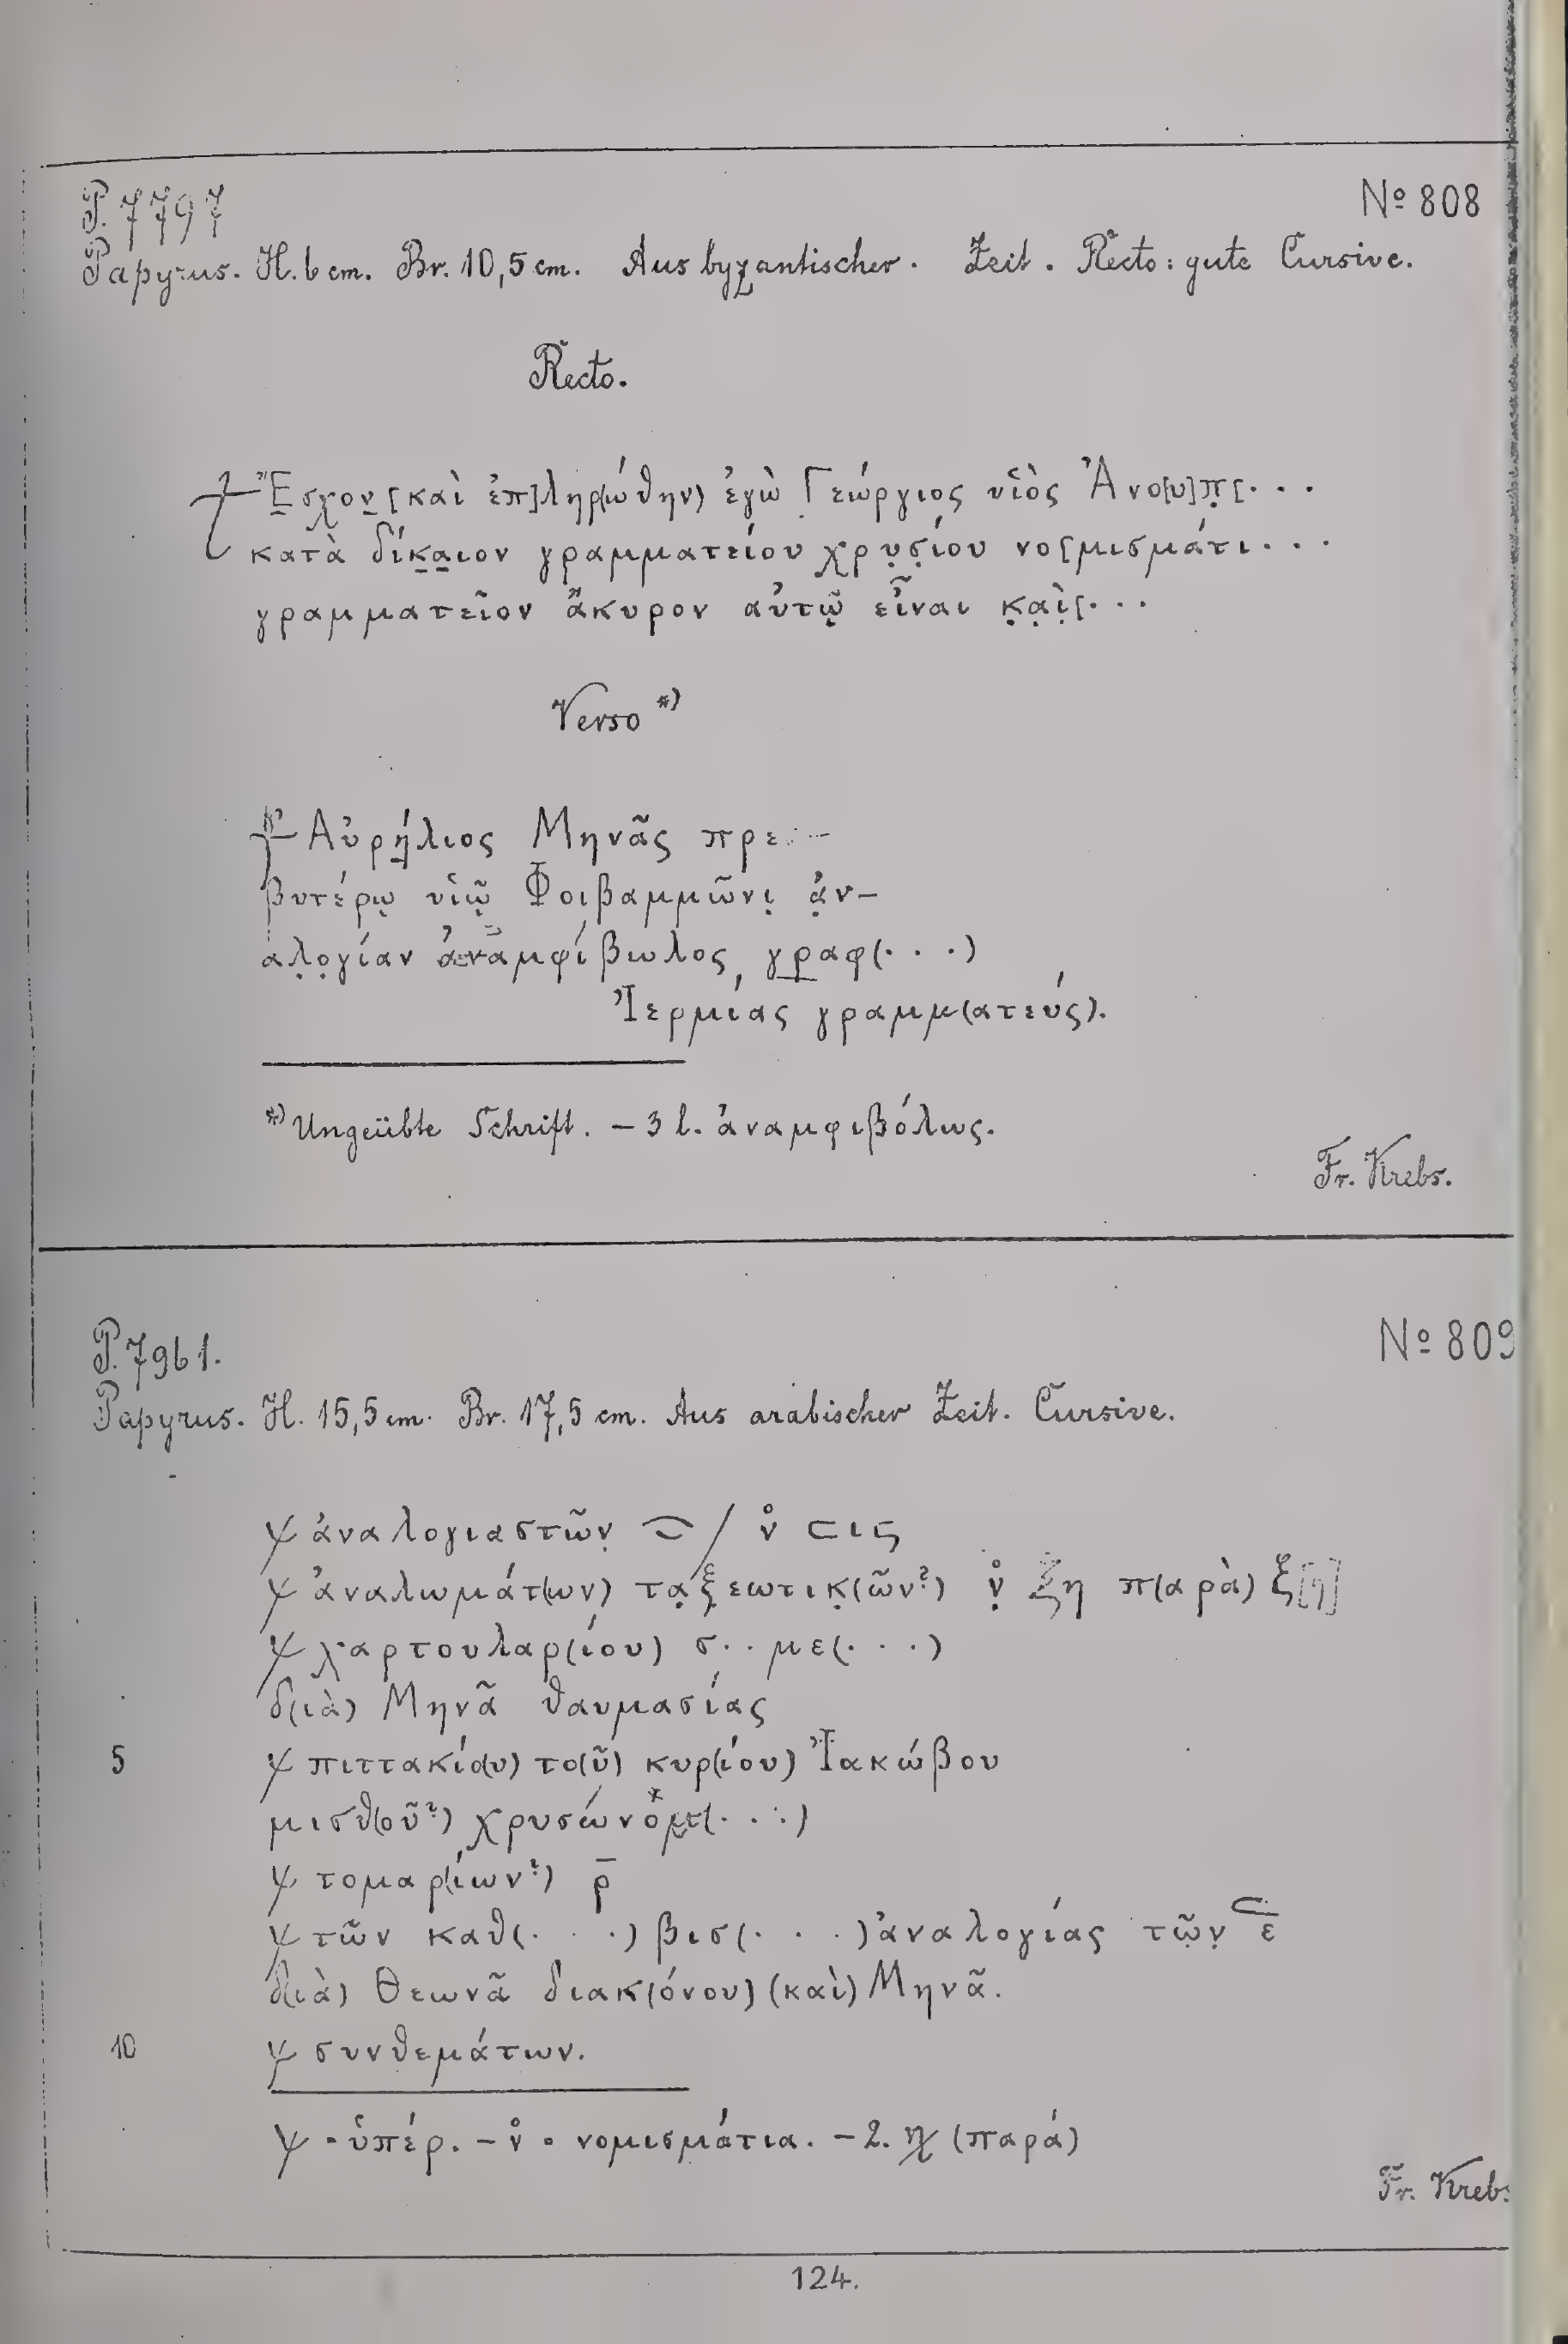 P. 7797
Nº 808
Papyrus. H. 6 cm. Br. 10,5 cm. Aus byzantischer. Zeit. Recto: gute Cursive.
Recto.
Ἔσχον [καὶ ἐπ]ληρ(ώθην) ἐγὼ Γεώργιος υἱὸς Ἀνο[υ]π̣[...
κατὰ δίκαιον γραμματείου χρυ̣σ̣ίου νο[μισμάτι...
γραμματεῖον ἄκυρον αὐτῷ εἶναι κ̣α̣ὶ̣[...
Verso *)
Αὐρήλιος Μηνᾶς πρε
βυτέρῳ υἱῷ Φοιβαμμῶνι̣ ἀ̣ν-
αλ̣ο̣γίαν ἀναμφίβωλος, γραφ(...)
Ἰερμίας γραμμ(ατεύς).
*) Ungeübte Schrift. – 3 l. ἀναμφιβόλως.
Fr. Krebs.
P. 7961.
Nº 809
Papyrus. H. 15,5 cm. Br. 17,5 cm. Aus arabischer Zeit. Cursive.
ἀναλογιαστῶν̣ / ν̊ ⊂ις
ἀναλωμάτ(ων) τα̣ξ̣εωτικ̣(ῶν?) ν̣̊ ξη π(αρὰ) ξ[η]
χαρτουλαρ(ίου) σ..με(...)
δ(ιὰ) Μηνᾶ θαυμασίας
5 πιττακίο(υ) το(ῦ) κυρ(ίου) Ἰακώβου
μισθ(οῦ?) χρυσών
τομαρ(ίων?) ρ̄
τῶν καθ(...) βισ(...) ἀναλογίας τῶ̣ν̣ ⊂ ε̄
δ(ιὰ) Θεωνᾶ διακ(όνου) (καὶ) Μηνᾶ.
10 συνθεμάτων.
ὑπέρ. – ν̊ = νομισμάτια. – 2. (παρά)
Fr. Krebs
124.